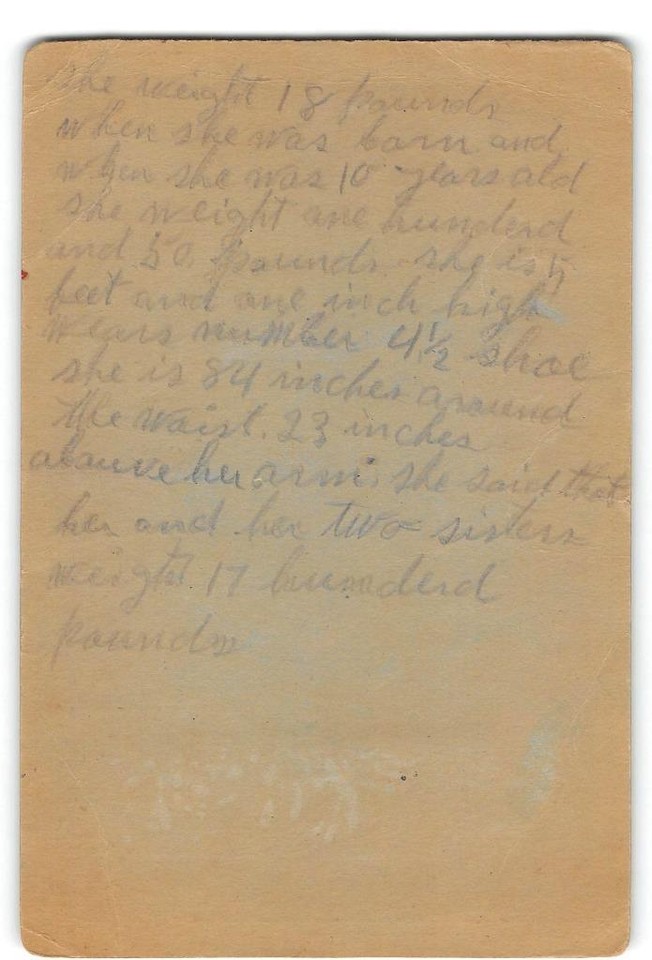 she weight 18 pounds
when she was born and
when she was 10 years old
she weight one hunderd
and 50 pounds. she is 5
feet and one inch high
wears number 4½ shoe
she is 84 inches around
the waist. 23 inches
abouve her arm. she said that
her and her two sisters
weight 17 hunderd
pounds